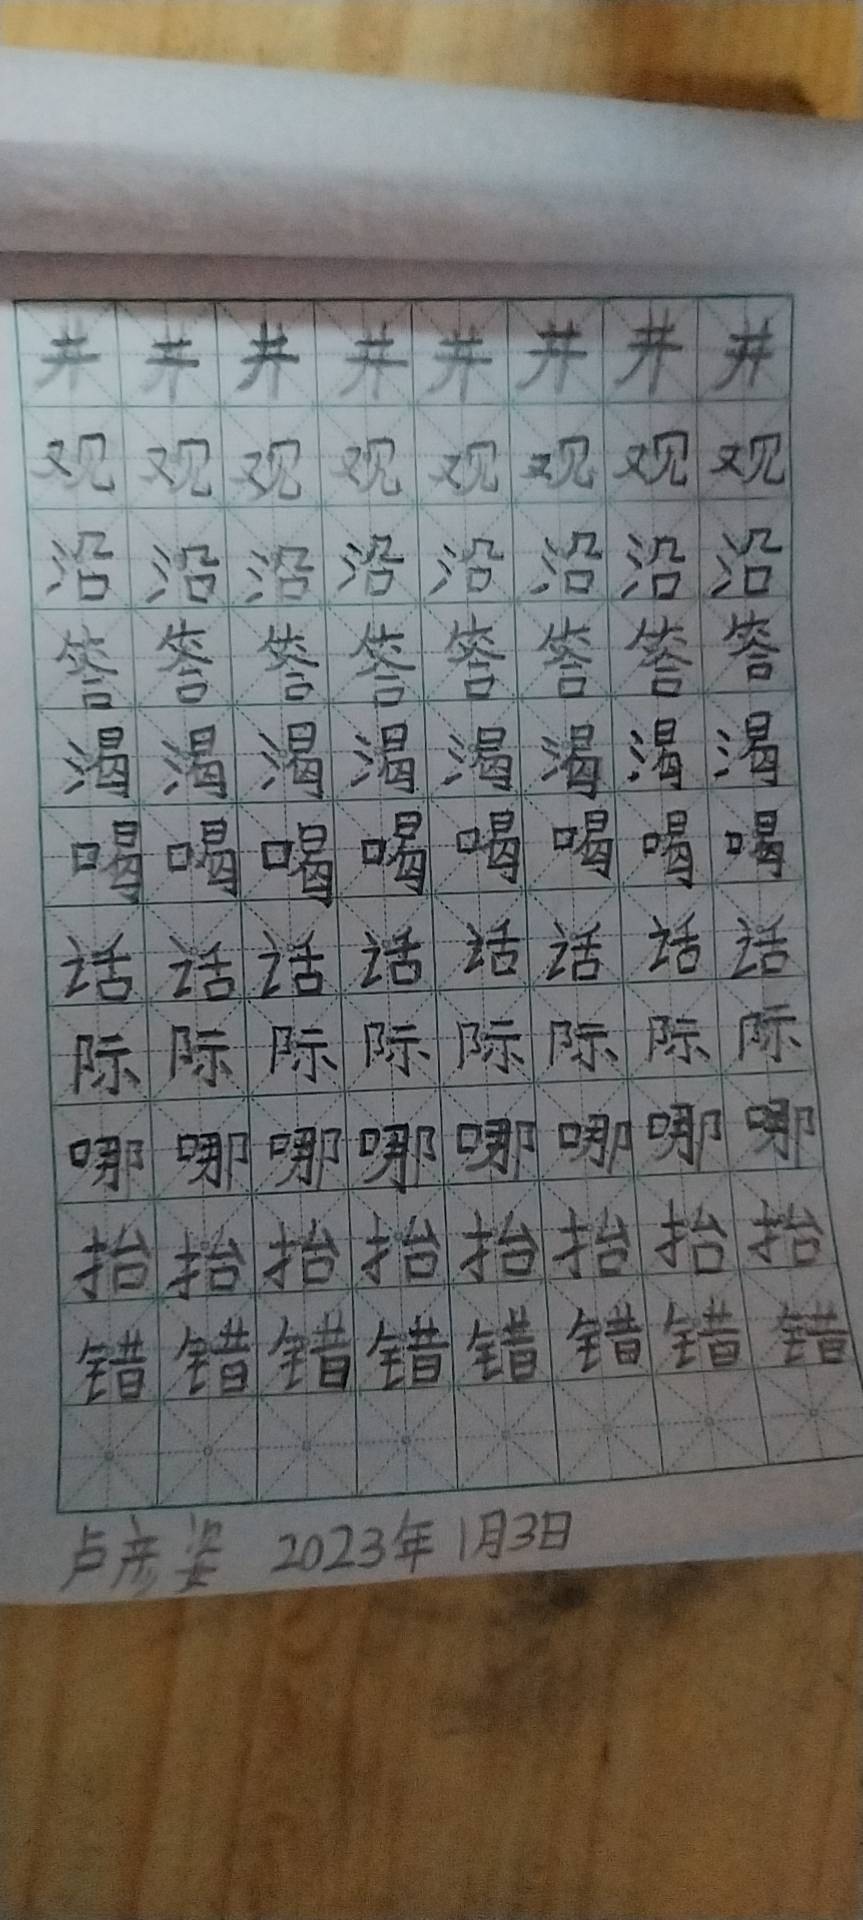 井井井井井井井井
观观观观观观观观
沿沿沿沿沿沿沿沿
答答答答答答答答
渴渴渴渴渴渴渴渴
喝喝喝喝喝喝喝喝
话话话话话话话话
际际际际际际际际
哪哪哪哪哪哪哪哪
抬抬抬抬抬抬抬抬
错错错错错错错错
卢彦姿 2023年1月3日